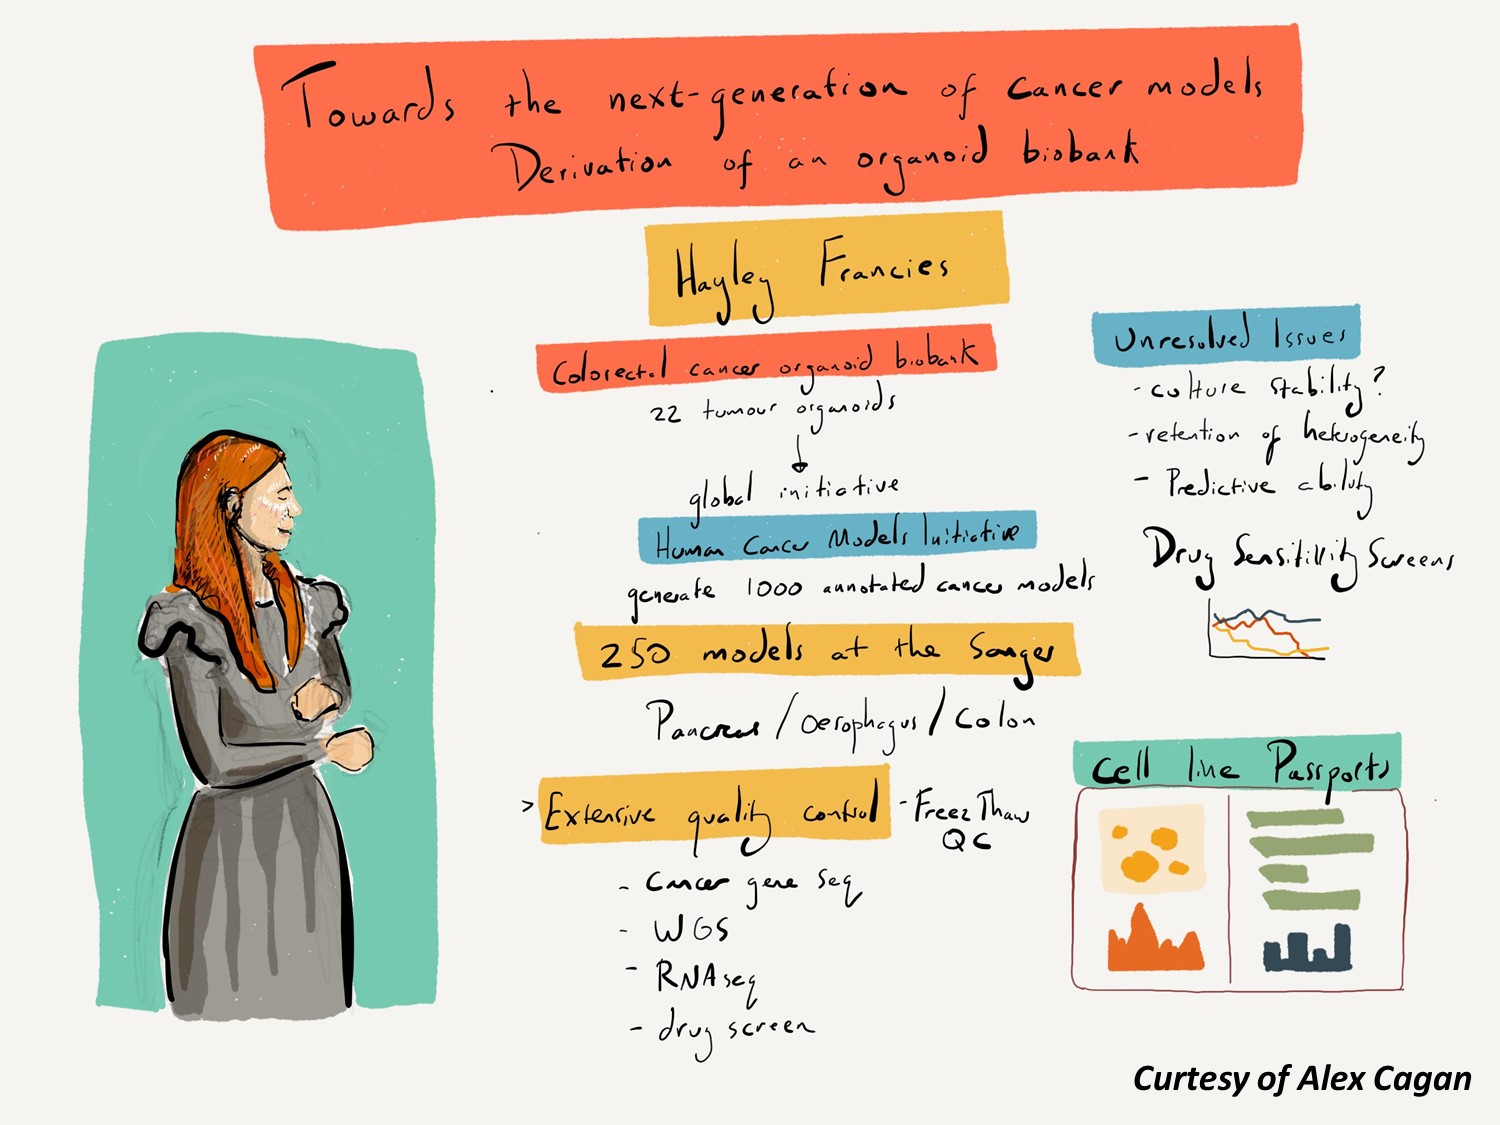 Towards the next-generation of cancer models
Derivation of an organoid biobank
Hayley Francies
Colorectal cancer organoid biobank
22 tumour organoids
global initiative
Human Cancer Models Initiative
generate 1000 annotated cancer models
250 models at the Sanger
Pancreas / Oesophagus / Colon
> Extensive quality control - Freez Thaw
QC
- Cancer gene seq
- WGS
- RNAseq
- drug screen
Unresolved Issues
- culture stability?
- retention of heterogeneity
- Predictive ability
Drug Sensitivity Screens
Cell line Passports
Curtesy of Alex Cagan